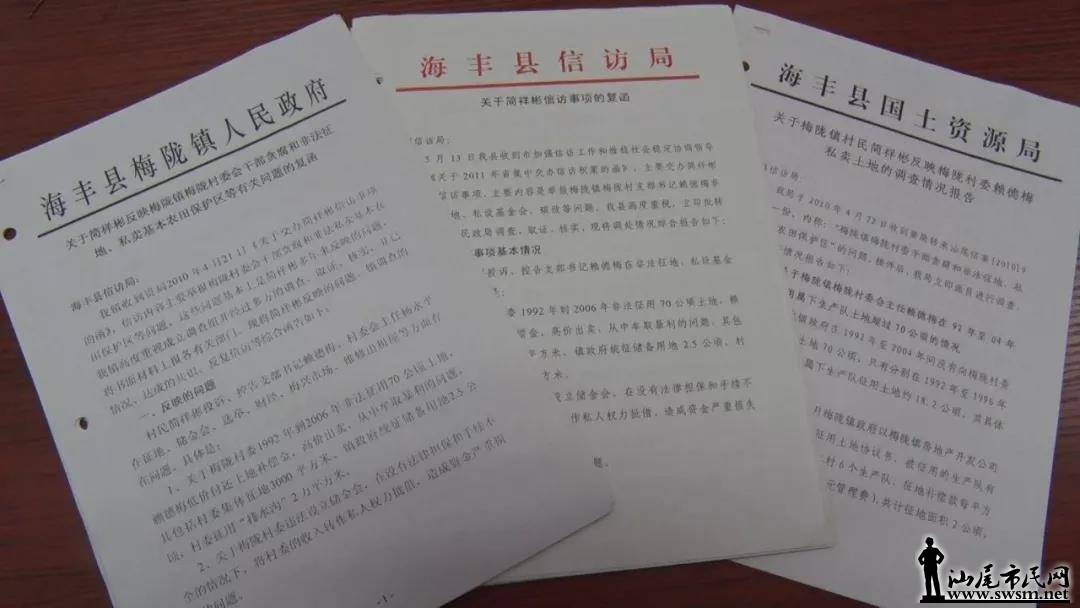 海丰县梅陇镇人民政府
关于简祥彬反映梅陇镇梅陇村委会干部贪腐和非法征
地、私卖基本农田保护区等有关问题的复函
海丰县信访局:
我镇收到贵局2010年4月21日《关于交办简祥彬信访事项
的函》,信访内容主要举报梅陇村委会干部贪腐和非法私卖基本农
田保护区等问题。这些问题基本上是简祥彬多年来反映的问题,
我镇高度重视成立调查组并经过多方的调查、取证、核实,并已
将书面材料上报各有关部门。现将简祥彬反映的问题、镇调查的
情况、达成的共识、反复信访等综合函告如下:
一、反映的问题
村民简祥彬投诉、控告支部书记赖德梅、村委会主任杨水平
在征地、储金会、选举、财经、梅兴市场、维修山祖屋等方面存
在问题。具体是:
1、关于梅陇村委1992年到2006年非法征用70公顷土地,
赖德梅低价付还土地补偿金,高价出卖,从中牟取暴利的问题,
其包括村委集体征地3000平方米、镇政府统征储备用地2.5公
顷,村委征用“排水沟”2万平方米。
2、关于梅陇村委违法设立储金会,在没有法律担保和手续不
全的情况下,将村委的收入转作私人权力批借,造成资金严重损
的问题。
- 1 -
海丰县信访局
关于简祥彬信访事项的复函
信访局:
5月13日我县收到市加强信访工作和维稳社会稳定协调领导
《关于2011年省集中交办信访积案的函》,主要交办简祥彬
信访事项,主要内容是举报梅陇镇梅陇村支部书记赖德梅非
地、私设基金会、烦改等问题。我县高度重视,立即批转
民政局调查、取证、核实,现将调处情况综合报告如下:
事项基本情况
投诉、控告支部书记赖德梅在非法征地、私设基金
:
委1992年到2006年非法征用70公顷土地,赖
偿金,高价出卖,从中牟取暴利的问题,其包
平方米、镇政府统征储备用地2.5公顷,村
方米。
设立储金会,在没有法律担保和手续不
作私人权力批借,造成资金严重损失
题。
海丰县国土资源局
关于梅陇镇村民简祥彬反映梅陇村委赖德梅
私卖土地的调查情况报告
信访局:
一份,内称:“梅陇镇梅陇村委干部贪腐和非法征地、私
农田保护区”的问题,接件后,我局立即派员进行调查,
情况报告如下:
关于梅陇镇梅陇村委会主任赖德梅在92年至04年
用属下生产队土地超过70公顷的情况
镇政府在1991年至2004年间没有向梅陇村委
土地70公顷,只有分别在1992年至1996年
属下生产队征用土地约18.2公顷,其具体
月梅陇镇政府以梅陇镇房地产开发公司
征用土地协议书,被征用的生产队有
村6个生产队,征地补偿款每平方
元管理费),共计征地面积2公顷,
汕尾市民网
www.swsm.net